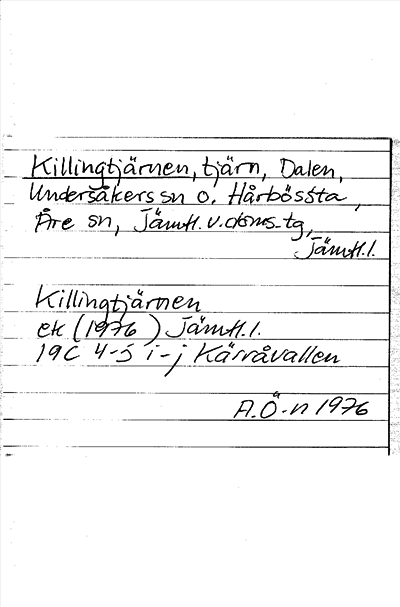 Killingtjärnen, tjärn, Dalen,
Undersåkers sn o. Hårbössta,
Åre sn, Jämtl. v. doms. tg,
Jämtl. l.
Killingtjärnen
ek (1976) Jämtl. l.
19C 4-5 i-j Kärråvallen
A.Ö-n 1976